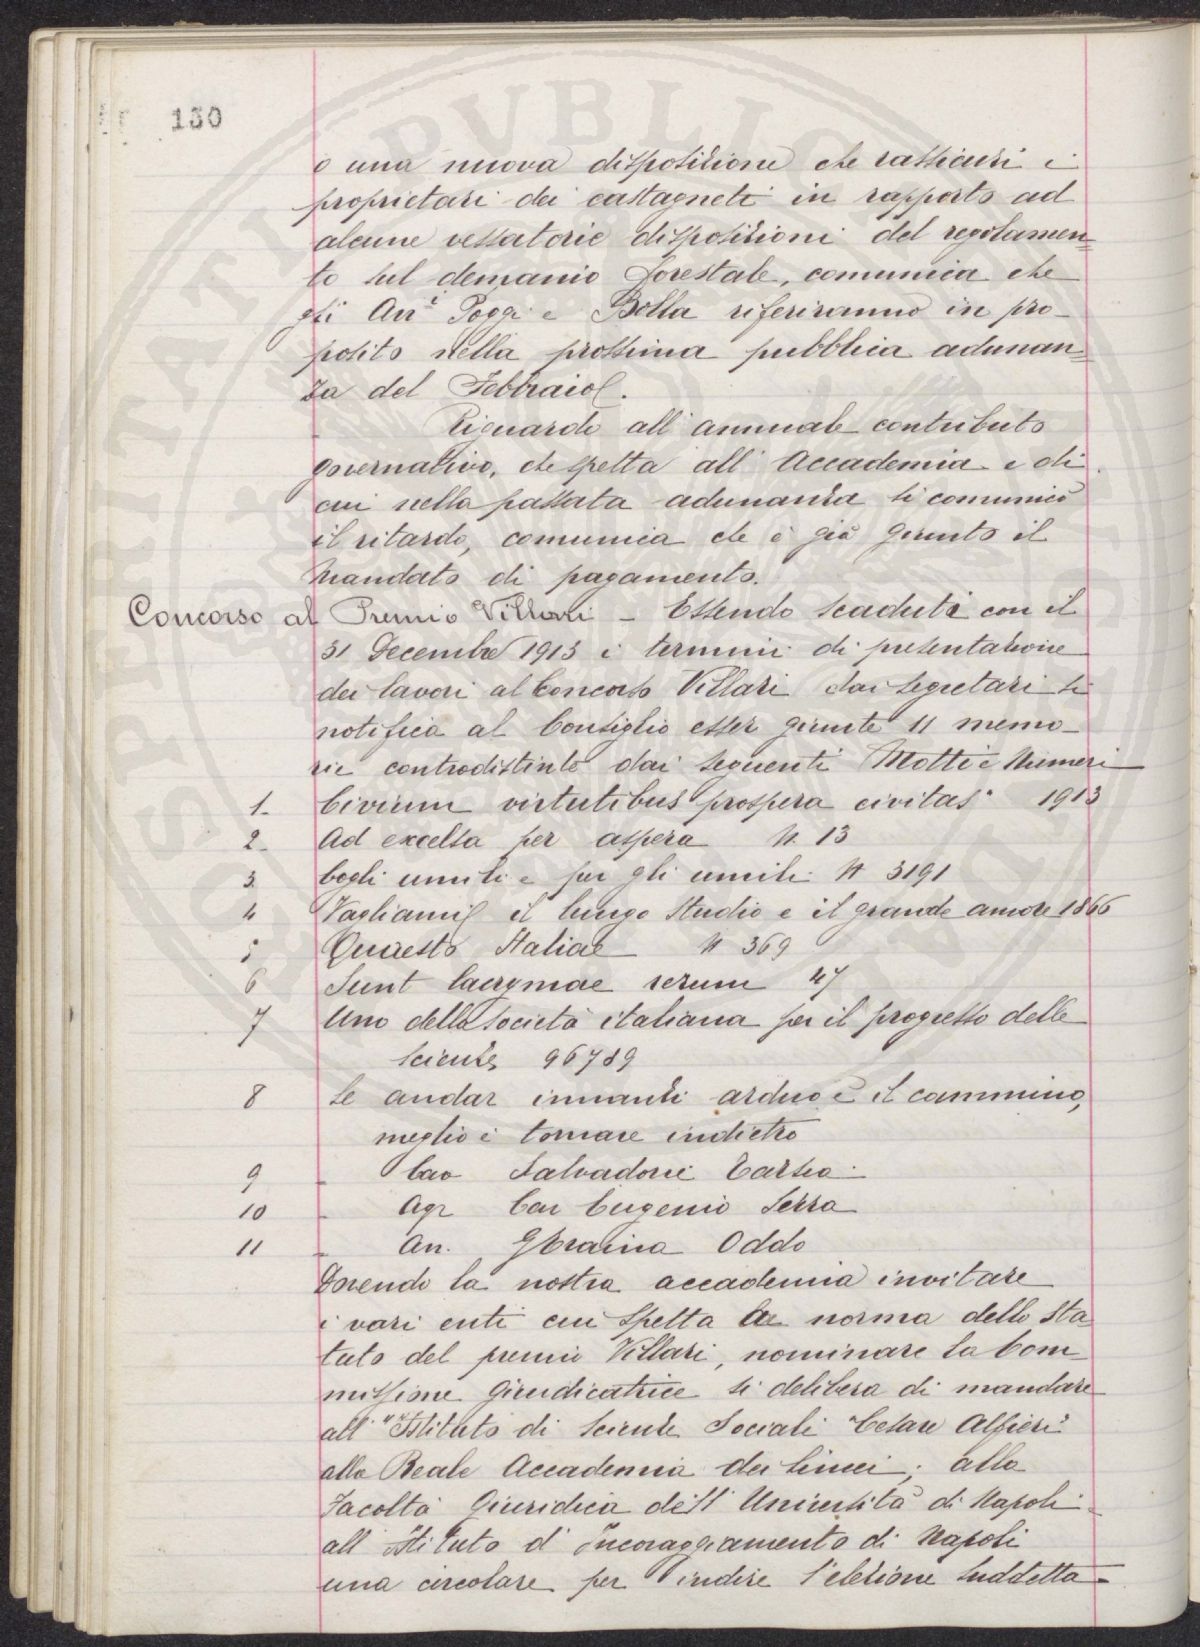 130
o una nuova disposizione che rassicuri i
proprietari dei castagneti in rapporto ad
alcune vessatorie disposizioni del regolamen=
to sul demanio forestale, comunica che
gli Avi Poggi e Bolla riferiranno in pro-
posito nella prossima pubblica adunan=
za del Febbraio.
Riguardo all' annuale contributo
governativo, che spetta all' Accademia e di
cui nella passata adunanza si comunicò
il ritardo, comunica che è già giunto il
mandato di pagamento.
Concorso al Premio Villari - Essendo scaduti con il
31 Decembre 1913 i termini di presentazione
dei lavori al Concorso Villari dai segretari si
notifica al Consiglio esser giunte 11 memo-
rie controdistinte dai seguenti Motti e Numeri
1. Civium virtutibus prospera civitas" 1913
2. Ad excelsa per aspera N. 13
3. Cogli umili e per gli umili N 3191
4 Vagliami il lungo studio e il grande amore 1866
5 Quaesto Italiae N 369
6 Sunt lacrymae rerum 47
7 Uno della Società italiana per il progresso delle
Scienze 96789
8 Se andar innanzi arduo è il cammino,
meglio è tornare indietro
9 - Cav Salvadori
10 - Agr Cav Eugenio Serra
11 - Av. Oddo
Dovendo la nostra accademia invitare
i vari enti cui spetta a norma dello Sta
tuto del premio Villari, nominare la Com=
missione giudicatrice si delibera di mandare
all' "Istituto di Scienze Sociali "Cesare Alfieri"
alla Reale Accademia dei Lincei; alla
Facoltà Giuridica dell' Università di Napoli -
all' Istituto d' Incoraggiamento di Napoli
una circolare per indire l'elezione suddetta -